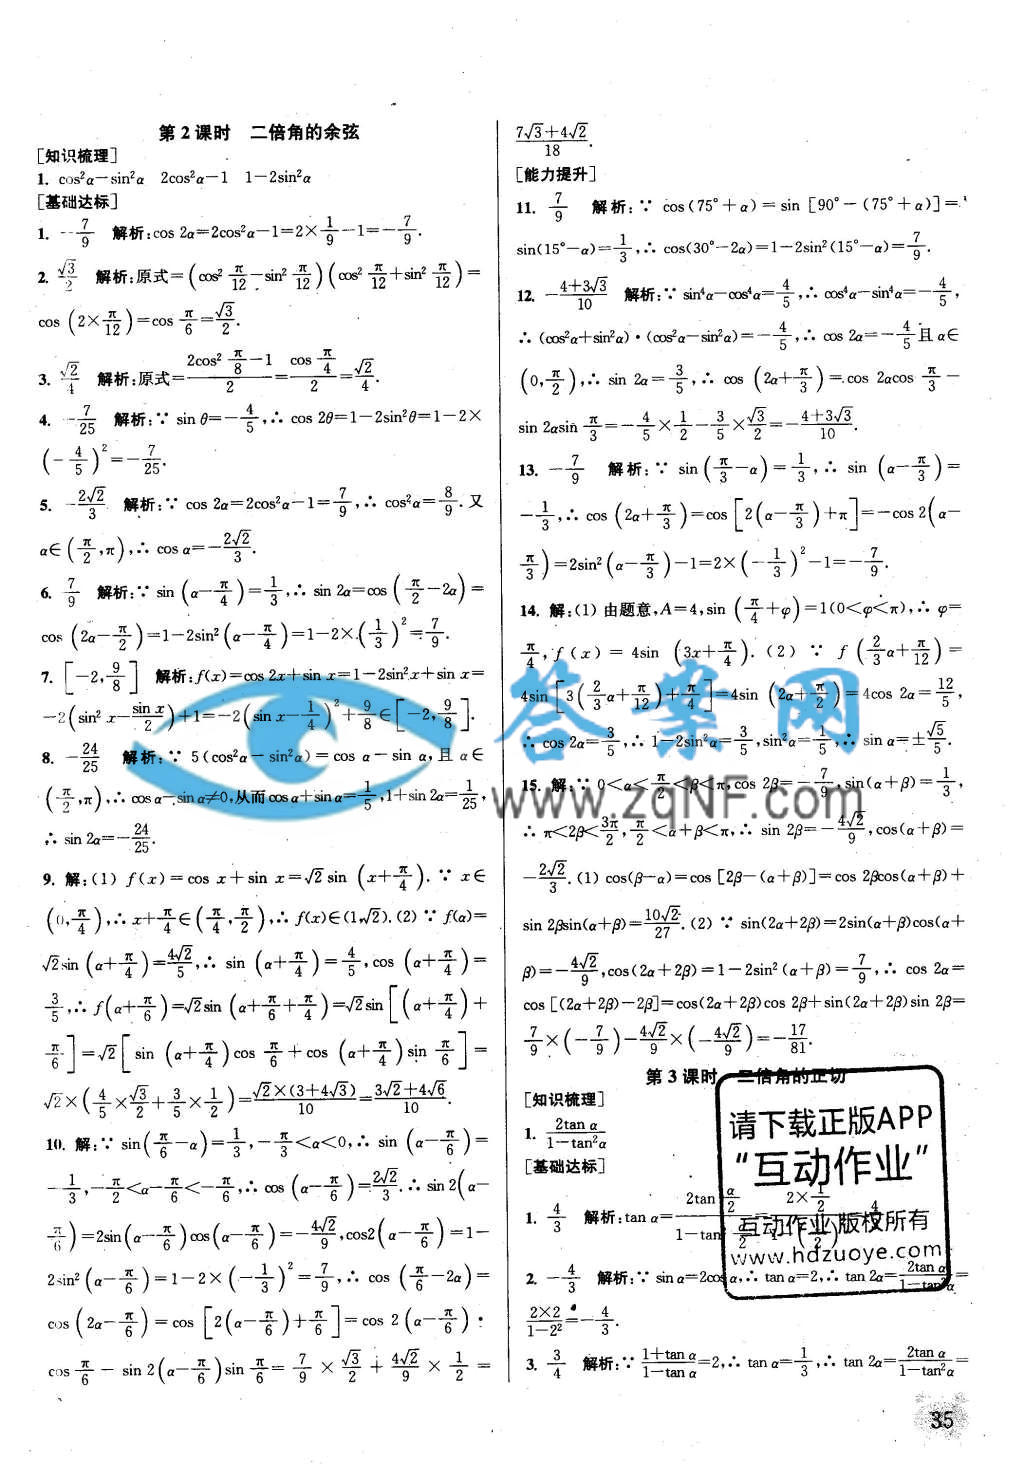 第2课时 二倍角的余弦
[知识梳理]
1. cos²α－sin²α 2cos²α－1 1－2sin²α
[基础达标]
1. －7/9 解析:cos 2α＝2cos²α－1＝2×1/9－1＝－7/9.
2. √3/2 解析:原式＝(cos² π/12－sin² π/12)(cos² π/12＋sin² π/12)＝
cos (2×π/12)＝cos π/6＝√3/2.
3. √2/4 解析:原式＝(2cos² π/8－1)/2＝(cos π/4)/2＝√2/4.
4. －7/25 解析:∵ sin θ＝－4/5,∴ cos 2θ＝1－2sin²θ＝1－2×
(－4/5)²＝－7/25.
5. －2√2/3 解析:∵ cos 2α＝2cos²α－1＝7/9,∴ cos²α＝8/9.又
α∈(π/2,π),∴ cos α＝－2√2/3.
6. 7/9 解析:∵ sin(α－π/4)＝1/3,∴ sin 2α＝cos(π/2－2α)＝
cos(2α－π/2)＝1－2sin²(α－π/4)＝1－2×(1/3)²＝7/9.
7. [－2,9/8] 解析:f(x)＝cos 2x＋sin x＝1－2sin²x＋sin x＝
－2(sin² x－sin x/2)＋1＝－2(sin x－1/4)²＋9/8∈[－2,9/8].
8. －24/25 解析:∵ 5(cos²α－sin²α)＝cos α－sin α,且 α∈
(π/2,π),∴ cos α－sin α≠0,从而 cos α＋sin α＝1/5,1＋sin 2α＝1/25,
∴ sin 2α＝－24/25.
9. 解:(1) f(x)＝cos x＋sin x＝√2sin (x＋π/4). ∵ x∈
(0,π/4),∴ x＋π/4∈(π/4,π/2),∴ f(x)∈(1,√2).(2) ∵ f(α)＝
√2sin(α＋π/4)＝4√2/5,∴ sin (α＋π/4)＝4/5,cos (α＋π/4)＝
3/5,∴ f(α＋π/6)＝√2sin (α＋π/6＋π/4)＝√2sin[(α＋π/4)＋
π/6]＝√2[sin (α＋π/4)cos π/6＋cos (α＋π/4)sin π/6]＝
√2×(4/5×√3/2＋3/5×1/2)＝√2×(3＋4√3)/10＝(3√2＋4√6)/10.
10. 解:∵ sin(π/6－α)＝1/3,－π/3<α<0,∴ sin (α－π/6)＝
－1/3,－π/2<α－π/6<－π/6,∴ cos (α－π/6)＝2√2/3.∴ sin 2(α－
π/6)＝2sin(α－π/6)cos(α－π/6)＝－4√2/9,cos2(α－π/6)＝1－
2sin²(α－π/6)＝1－2×(－1/3)²＝7/9,∴ cos (π/6－2α)＝
cos (2α－π/6)＝cos [2(α－π/6)＋π/6]＝cos 2(α－π/6)·
cos π/6－sin 2(α－π/6)sin π/6＝7/9×√3/2＋4√2/9×1/2＝
(7√3＋4√2)/18.
[能力提升]
11. 7/9 解析:∵ cos(75°＋α)＝sin [90°－(75°＋α)]＝
sin(15°－α)＝1/3,∴ cos(30°－2α)＝1－2sin²(15°－α)＝7/9.
12. －(4＋3√3)/10 解析:∵ sin⁴α－cos⁴α＝4/5,∴ cos⁴α－sin⁴α＝－4/5,
∴ (cos²α＋sin²α)·(cos²α－sin²α)＝－4/5,∴ cos 2α＝－4/5且 α∈
(0,π/2),∴ sin 2α＝3/5,∴ cos (2α＋π/3)＝cos 2αcos π/3－
sin 2αsin π/3＝－4/5×1/2－3/5×√3/2＝－(4＋3√3)/10.
13. －7/9 解析:∵ sin(π/3－α)＝1/3,∴ sin (α－π/3)＝
－1/3,∴ cos (2α＋π/3)＝cos[2(α－π/3)＋π]＝－cos 2(α－
π/3)＝2sin²(α－π/3)－1＝2×(－1/3)²－1＝－7/9.
14. 解:(1) 由题意,A＝4,sin (π/4＋φ)＝1(0<φ<π),∴ φ＝
π/4,f(x)＝4sin (3x＋π/4).(2) ∵ f(2/3α＋π/12)＝
4sin[3(2/3α＋π/12)＋π/4]＝4sin (2α＋π/2)＝4cos 2α＝12/5,
∴ cos 2α＝3/5,∴ 1－2sin²α＝3/5,sin²α＝1/5,∴ sin α＝±√5/5.
15. 解:∵ 0<α<π/2<β<π,cos 2β＝－7/9,sin(α＋β)＝1/3,
∴ π<2β<3π/2,π/2<α＋β<π,∴ sin 2β＝－4√2/9,cos(α＋β)＝
－2√2/3.(1) cos(β－α)＝cos [2β－(α＋β)]＝cos 2βcos(α＋β)＋
sin 2βsin(α＋β)＝10√2/27.(2) ∵ sin(2α＋2β)＝2sin(α＋β)cos(α＋
β)＝－4√2/9,cos(2α＋2β)＝1－2sin²(α＋β)＝7/9,∴ cos 2α＝
cos [(2α＋2β)－2β]＝cos(2α＋2β)cos 2β＋sin(2α＋2β)sin 2β＝
7/9×(－7/9)－4√2/9×(－4√2/9)＝－17/81.
第3课时 二倍角的正切
[知识梳理]
1. 2tan α/(1－tan²α)
[基础达标]
1. 4/3 解析:tan α＝
2. －4/3 解析:∵ sin α＝2cos α,∴ tan α＝2,∴ tan 2α＝2tan α/(1－tan²α)＝
2×2/(1－2²)＝－4/3.
3. 3/4 解析:∵ (1＋tan α)/(1－tan α)＝2,∴ tan α＝1/3,∴ tan 2α＝2tan α/(1－tan²α)＝
答案网
www.zqNF.com
请下载正版APP
“互动作业”
互动作业 版权所有
www.hdzuoye.com
35